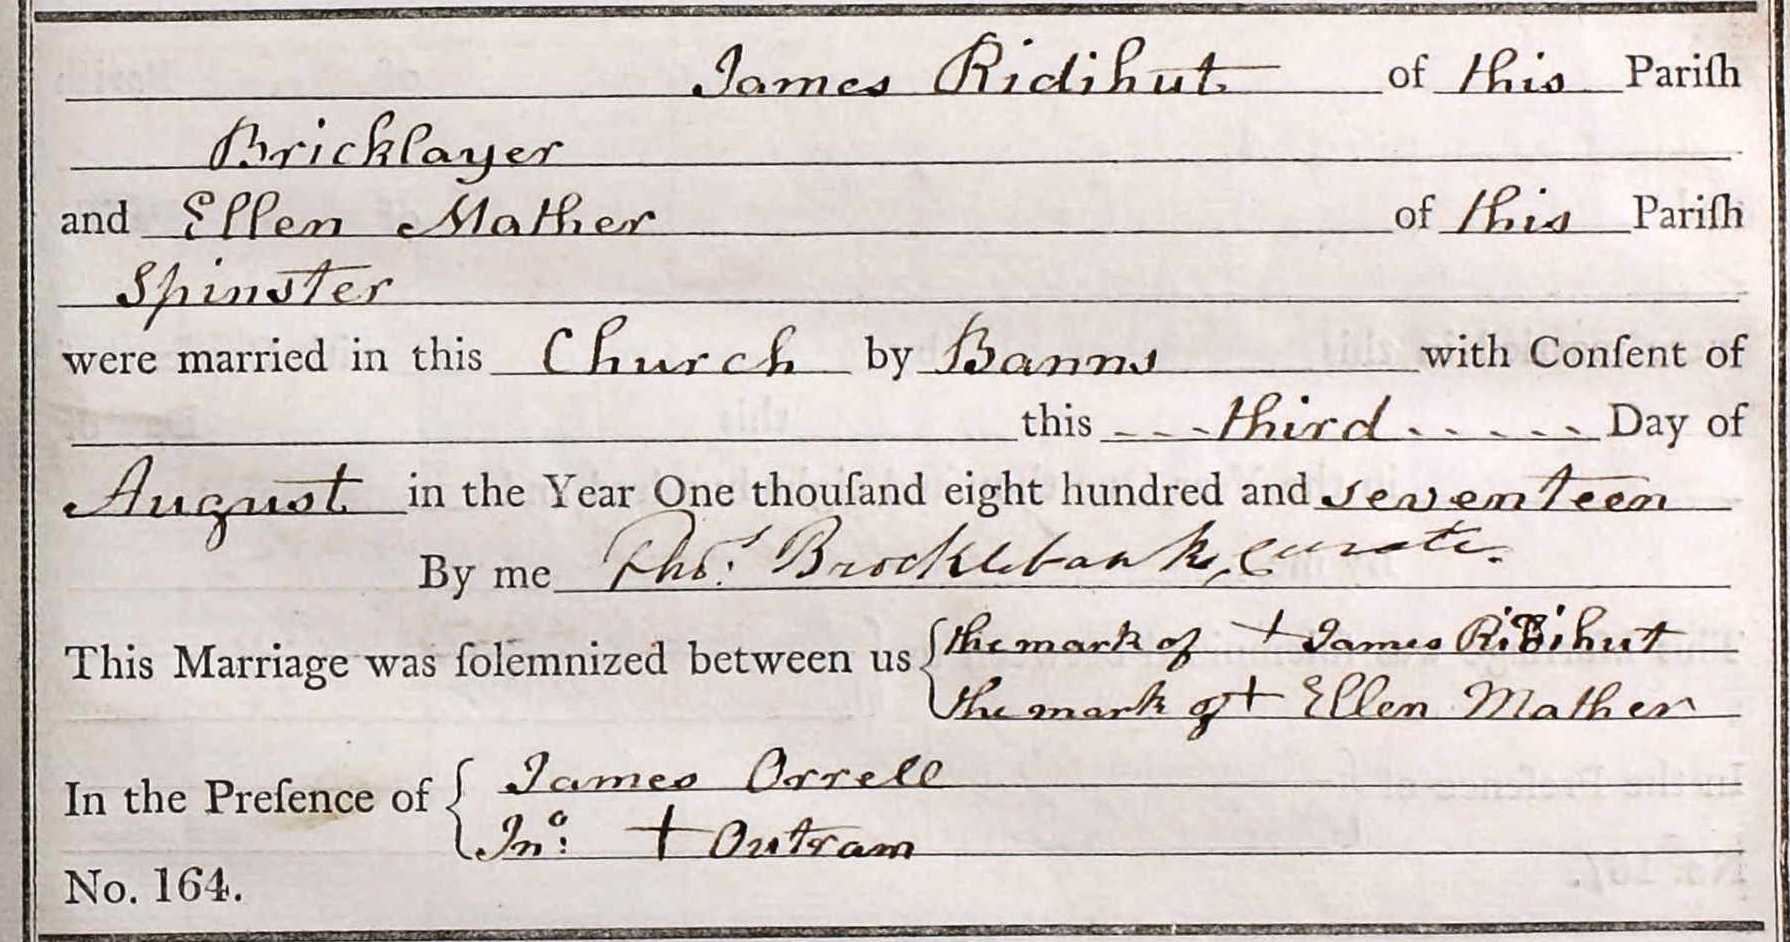 James Ridihut of this Pariſh
Bricklayer
and Ellen Mather of this Pariſh
Spinster
were married in this Church by Banns with Conſent of
this - - - third - - - - - Day of
August in the Year One thouſand eight hundred and seventeen
By me Thos. Brocklebank, Curate.
This Marriage was ſolemnized between us { the mark of + James Ridihut
the mark of + Ellen Mather
In the Preſence of { James Orrell
Jno: + Outram
No. 164.